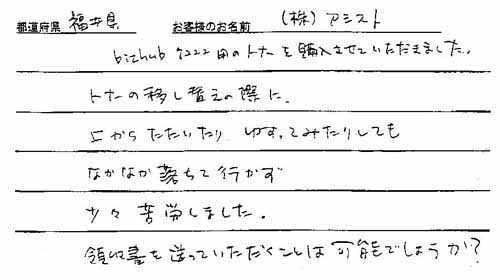 都道府県 福井県 お客様のお名前 (株)アシスト
bizhub 7222用のトナーを購入させていただきました。
トナーの移し替えの際に、
上からたたいたり ゆすってみたりしても
なかなか落ちて行かず
少々苦労しました。
領収書を送っていただくことは可能でしょうか?